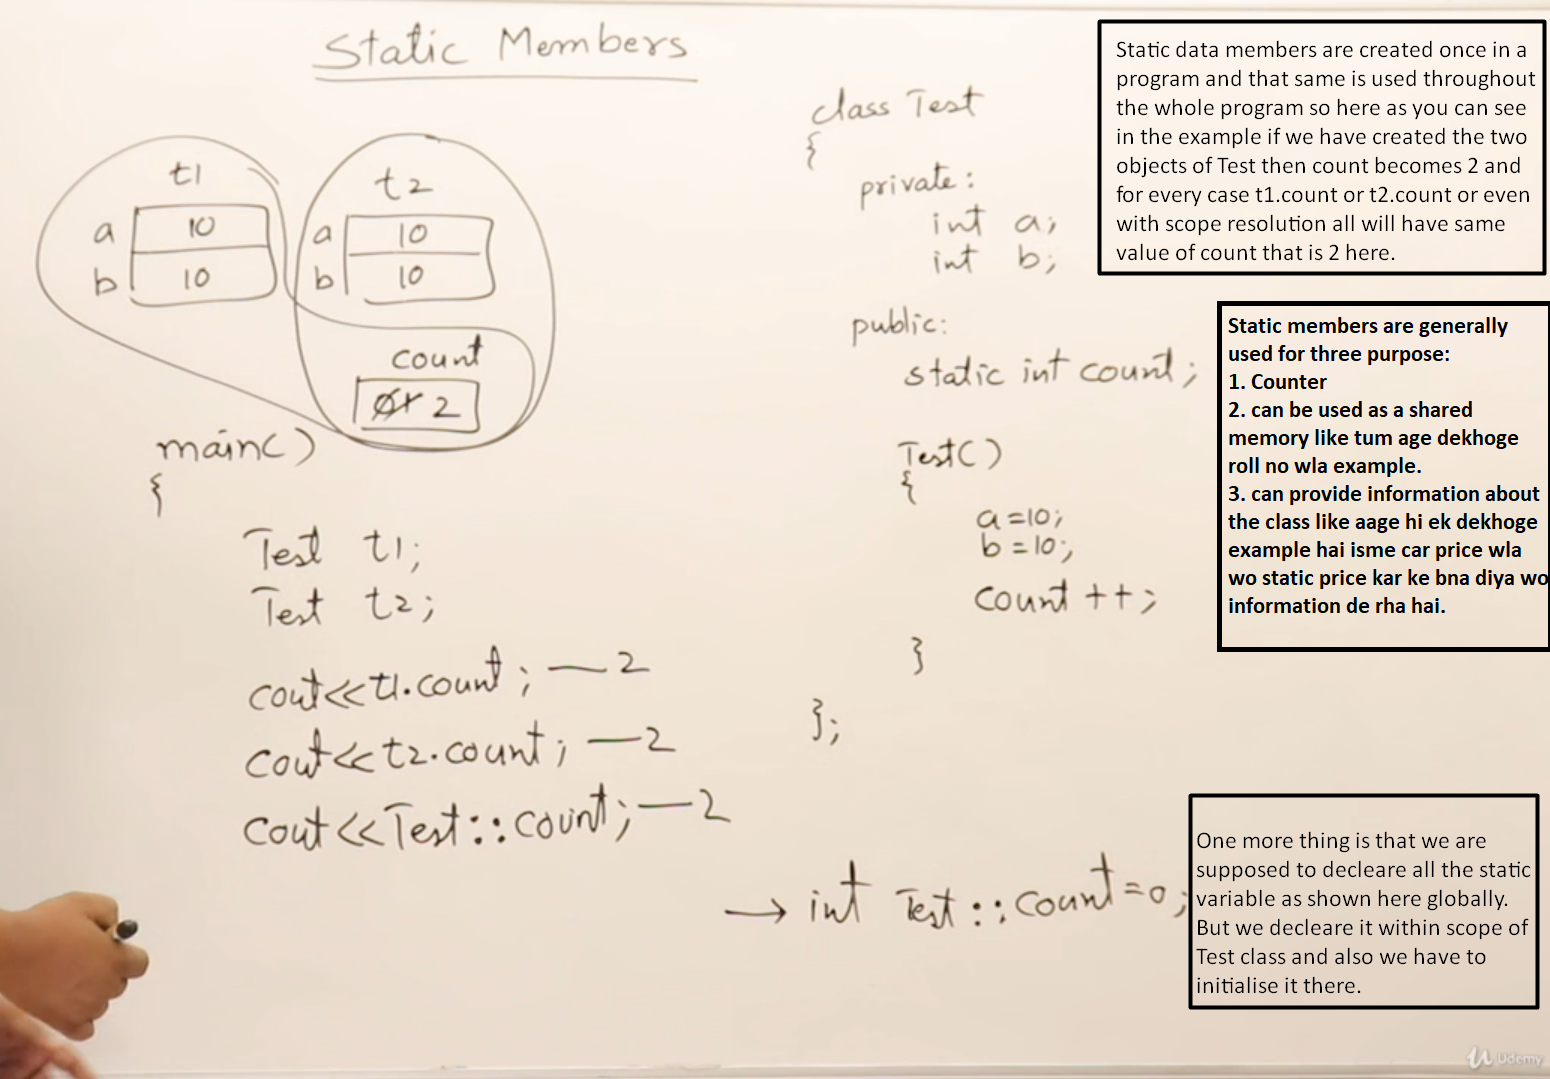 Static Members
t1
a 10
b 10
t2
a 10
b 10
count
0 1 2
main()
{
Test t1;
Test t2;
cout<<t1.count; — 2
cout<<t2.count; — 2
cout<<Test::count; — 2
class Test
{
private:
int a;
int b;
public:
static int count;
Test()
{
a=10;
b=10;
count++;
}
};
→ int Test::count=0;
Static data members are created once in a
program and that same is used throughout
the whole program so here as you can see
in the example if we have created the two
objects of Test then count becomes 2 and
for every case t1.count or t2.count or even
with scope resolution all will have same
value of count that is 2 here.
Static members are generally
used for three purpose:
1. Counter
2. can be used as a shared
memory like tum age dekhoge
roll no wla example.
3. can provide information about
the class like aage hi ek dekhoge
example hai isme car price wla
wo static price kar ke bna diya wo
information de rha hai.
One more thing is that we are
supposed to decleare all the static
variable as shown here globally.
But we decleare it within scope of
Test class and also we have to
initialise it there.
Udemy